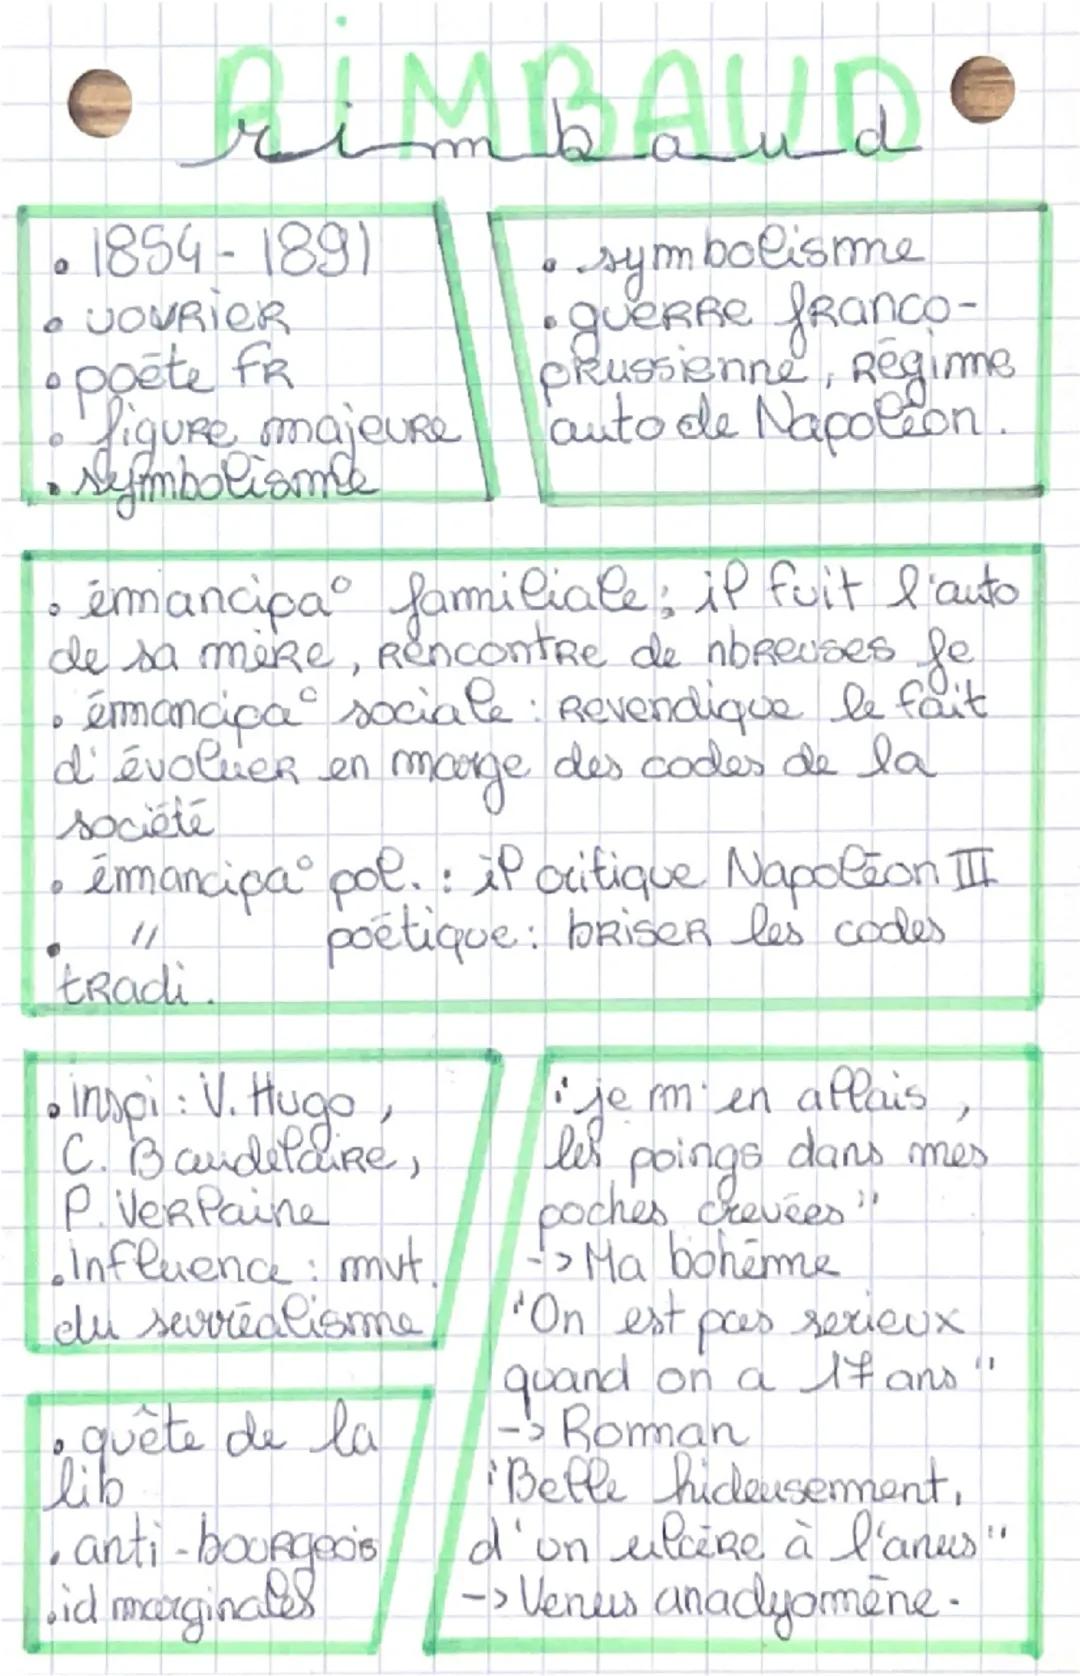 RIMBAUD
rimbaud
• 1854 - 1891
• UOVRIER
• poète FR
• figure majeure
• symbolisme
• symbolisme
• guerre franco-
prussienne, Régime
auto de Napoléon.
• émancipa° familiale ; il fuit l'auto
de sa mère, rencontre de nbreuses fe
• émancipa° sociale : revendique le fait
d'évoluer en marge des codes de la
société
• émancipa° pol. : il critique Napoléon III
• " poétique : briser les codes
tradi.
• inspi : V. Hugo,
C. Baudelaire,
P. Verlaine
• Influence : mvt.
du surréalisme
• quête de la
lib
• anti-bourgeois
• id marginales
"je m'en allais,
les poings dans mes
poches crevées"
-> Ma bohème
"On est pas serieux
quand on a 17 ans"
-> Roman
"Belle hideusement,
d'un ulcère à l'anus"
-> Venus anadyomène.